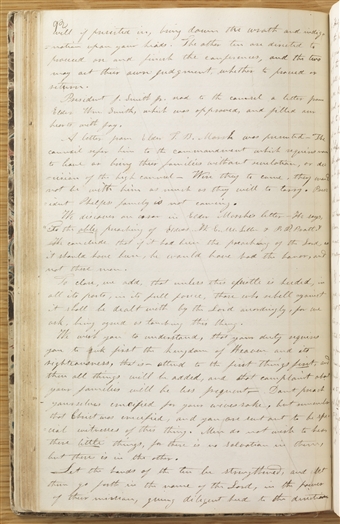 92
will if persisted in, bring down the wrath and indig-
nation upon your heads. The other ten are directed to
proceed on and finish the conferences, and the two
may act their own judgment, whether to proceed or
return.
President J. Smith jr. read to the council a letter from
Elder Wm. Smith which was approved, and filled our
heart with joy.
A letter from Elder T. B. Marsh was presented. The
council refer him to the commandment which requires none
to leave or bring their families without revelation, or de-
cision of the high council. Were they to come, they would
not be with him as much as they will to tarry. Pres-
ident Phelps family is not coming.
We discover an error in Elder Marshes letter. He says,
To the able preaching of
conclude, that if it had been the preaching of the Lord, as
it should have been, he would have had the honor, and
not these men.
To close, we add, that unless this epistle is heeded, in
all its parts, in its full force, those who rebell against
it shall be dealt with by the Lord accordingly, for we
ask, being agreed as touching this thing.
We wish you to understand, that your duty requires
you to seek first the kingdom of Heaven and its
righteousness, that is, attend to the first things first and
then all things will be added, and that complaint about
your families will be less frequent. Don't preach
yourselves crucified for your wives sake, but remember
that Christ was crucified, and you are sent out to be spe-
cial witnesses of this thing. Men do not wish to hear
these little things, for there is no salvation in them,
but there is in the other.
Let the hands of the ten be strengthened, and let
them go forth in the name of the Lord, in the power
of their mission, giving diligent heed to the direction